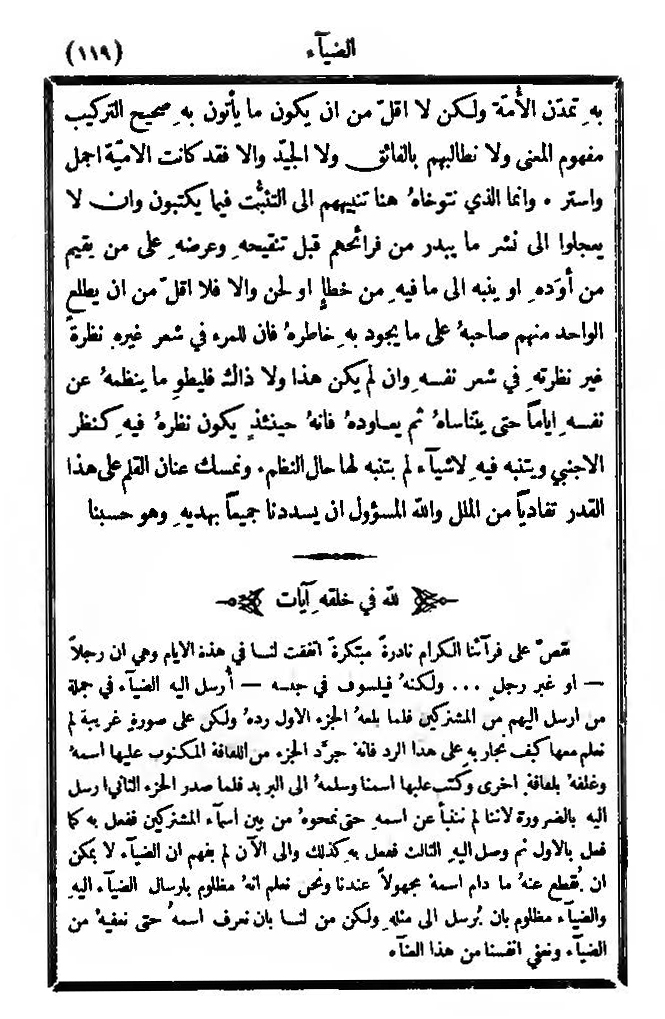 الضيآء
(١١٩)
بهِ تمدّن الأُمّة ولكن لا اقلّ من ان يكون ما يأتون بهِ صحيح التركيب
مفهوم المعنى ولا نطالبهم بالفائق ولا الجيّد والا فقد كانت الاميّة اجمل
واستر ٠ وانما الذي نتوخاهُ هنا تنبيههم الى التثبُّت فيما يكتبون وان لا
يعجلوا الى نشر ما يبدر من قرائحهم قبل تنقيحهِ وعرضهِ على من يقيم
من أوَدهِ او ينبه الى ما فيهِ من خطإٍ او لحن والا فلا اقلّ من ان يطلع
الواحد منهم صاحبهُ على ما يجود بهِ خاطرهُ فان للمرء في شعر غيرهِ نظرةً
غير نظرتهِ في شعر نفسهِ وان لم يكن هذا ولا ذاك فليطوِ ما ينظمهُ عن
نفسهِ اياماً حتى يتناساهُ ثم يعاودهُ فانهُ حينئذٍ يكون نظرهُ فيهِ كنظر
الاجنبي ويتنبه فيهِ لاشيآء لم يتنبه لها حال النظم٠ ونمسك عنان القلم على هذا
القدر تفادياً من الملل والله المسؤول ان يسددنا جميعاً بهديهِ وهو حسبنا
لله في خلقهِ آيات
نقصّ على قرآئنا الكرام نادرةً مبتكرةً اتفقت لنا في هذه الايام وهي ان رجلاً
— او غير رجلٍ ... ولكنهُ فيلسوف في جنسه — أُرسل اليه الضيآء في جملة
من ارسل اليهم من المشتركين فلما بلغهُ الجزء الاول ردهُ ولكن على صورةٍ غريبة لم
نعلم معها كيف نجاريهِ على هذا الرد فانهُ جرَّد الجزء من اللفافة المكتوب عليها اسمهُ
وغلفهُ بلفافةٍ اخرى وكتب عليها اسمنا وسلمهُ الى البريد فلما صدر الجزء الثاني ارسل
اليهِ بالضرورة لاننا لم ننبأ عن اسمهِ حتى نمحوهُ من بين اسمآء المشتركين ففعل به كما
فعل بالاول ثم وصل اليهِ الثالث ففعل بهِ كذلك والى الآن لم يفهم ان الضيآء لا يمكن
ان يُقطع عنهُ ما دام اسمهُ مجهولاً عندنا ونحن نعلم انهُ مظلوم بارسال الضيآء اليهِ
والضيآء مظلوم بان يُرسل الى مثلهِ ولكن من لنا بان نعرف اسمهُ حتى نعفيهُ من
الضيآء ونعفي انفسنا من هذا العنآء